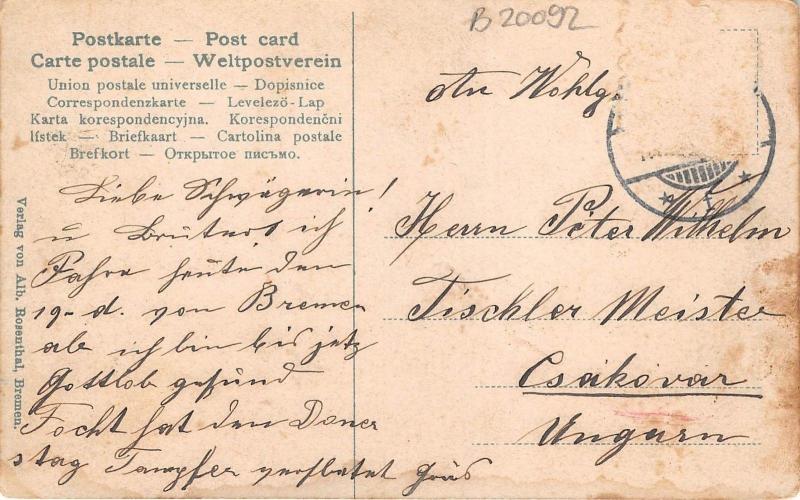 B20092
Postkarte — Post card
Carte postale — Weltpostverein
Union postale universelle — Dopisnice
Correspondenzkarte — Levelező-Lap
Karta korespondencyjna. Korespondenční
lístek — Briefkaart — Cartolina postale
Brefkort — Открытое письмо.
An Wohlg.
Herrn Péter Wilhelm
Tischler Meister
Csákovár
Ungarn
Liebe Schwägerin!
u Bruter ich
Fahre heute den
19- d. von Bremen
ab ich bin bis jetz
Gottlob gesund
Focht hat den Doner
stag Tampfer
Verlag von Alb. Rosenthal, Bremen.